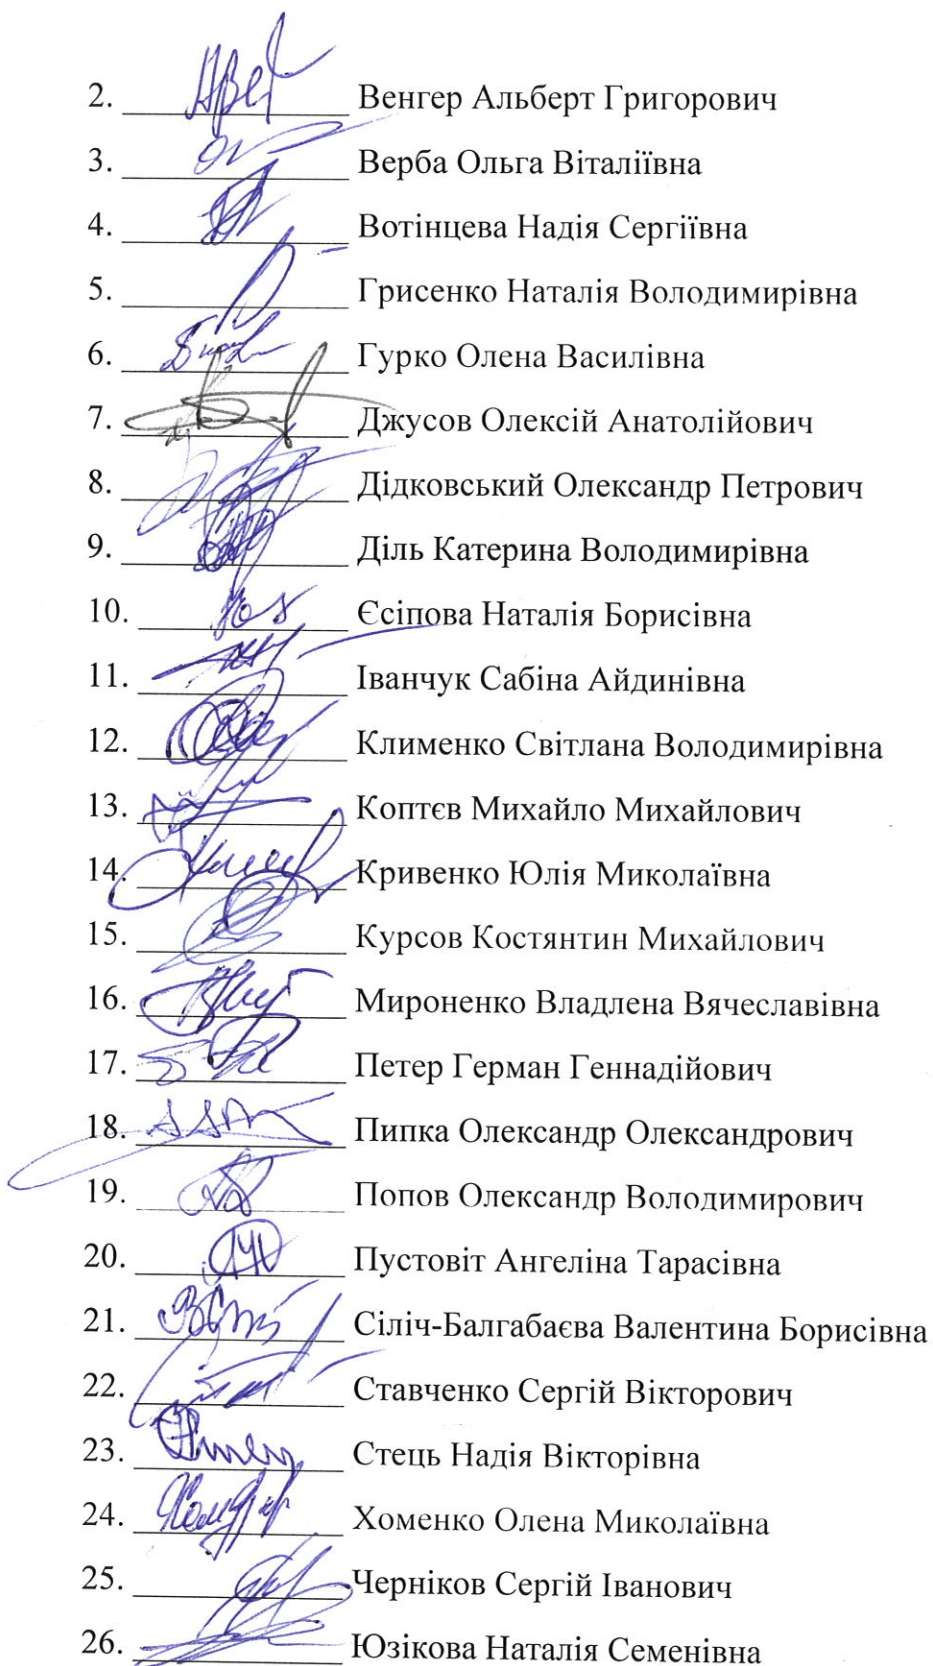 2. Венгер Альберт Григорович
3. Верба Ольга Віталіївна
4. Вотінцева Надія Сергіївна
5. Грисенко Наталія Володимирівна
6. Гурко Олена Василівна
7. Джусов Олексій Анатолійович
8. Дідковський Олександр Петрович
9. Діль Катерина Володимирівна
10. Єсіпова Наталія Борисівна
11. Іванчук Сабіна Айдинівна
12. Клименко Світлана Володимирівна
13. Коптєв Михайло Михайлович
14. Кривенко Юлія Миколаївна
15. Курсов Костянтин Михайлович
16. Мироненко Владлена Вячеславівна
17. Петер Герман Геннадійович
18. Пипка Олександр Олександрович
19. Попов Олександр Володимирович
20. Пустовіт Ангеліна Тарасівна
21. Сіліч-Балгабаєва Валентина Борисівна
22. Ставченко Сергій Вікторович
23. Стець Надія Вікторівна
24. Хоменко Олена Миколаївна
25. Черніков Сергій Іванович
26. Юзікова Наталія Семенівна